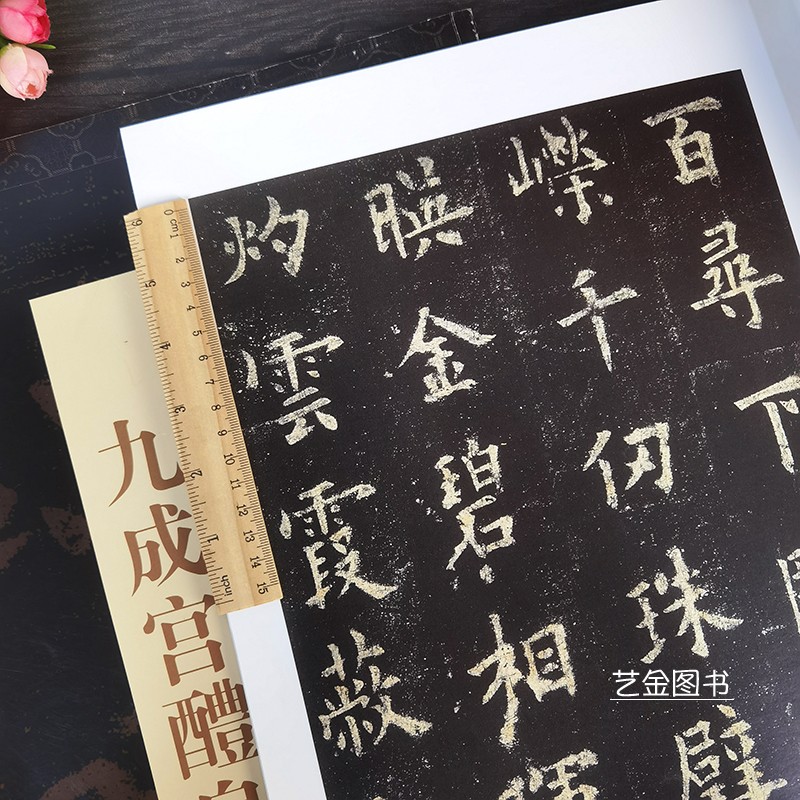 百尋下
嶸千仞珠璧
暎金碧相暉
灼雲霞蔽
0 cm 1 2 3 4 5 6 7 8 9 10 11 12 13 14 15
6 5 4 3 2 1 inch
九成宫醴泉
艺金图书